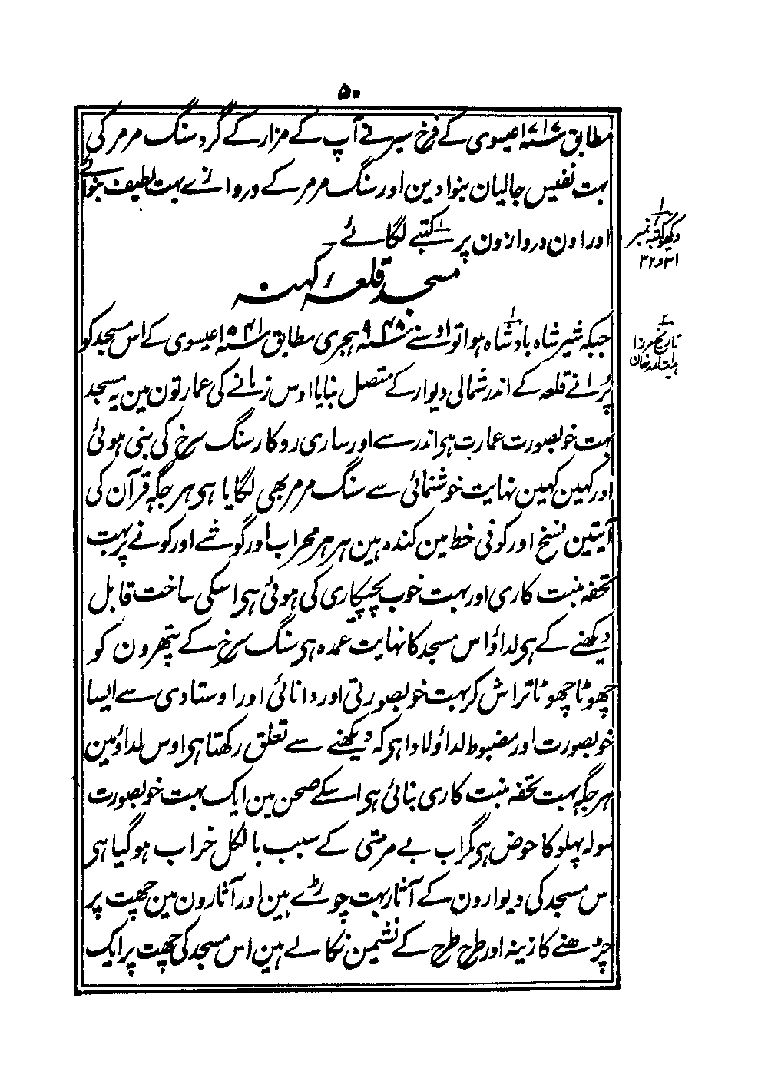 ۵۰
مطابق ۱۷۱۷ عیسوی کے فرخ سیر نے آپ کے مزار کے گرد سنگ مرمر کی
بہت نفیس جالیان بنوا دین اور سنگ مرمر کے دروازے بہت لطیف بنوائے
اور اون دروازون پر کتبے لگائے۔
مسجد قلعہ کہنہ
جبکہ شیر شاہ بادشاہ ہوا تو اوسنے ۹۴۸ ہجری مطابق ۱۵۴۱ عیسوی کے اس مسجد کو
پرانے قلعہ کے اندر شمالی دیوار کے متصل بنایا اوس زمانے کی عمارتون مین یہ مسجد
بہت خوبصورت عمارت ہی اندر سے اور ساری روکار سنگ سرخ کی بنی ہوئی
اور کہین کہین نہایت خوشنمائی سے سنگ مرمر بھی لگایا ہی ہر جگہ قرآن کی
آیتین نسخ اور کوفی خط مین کندہ ہین ہر ہر محراب اور گوشے اور کونے پر بہت
تحفہ منبت کاری اور بہت خوب پچیکاری کی ہوئی ہی اسکی ساخت قابل
دیکھنے کے ہی لداؤ اس مسجد کا نہایت عمدہ ہی سنگ سرخ کے پتھرون کو
چھوٹا چھوٹا تراش کر بہت خوبصورتی اور دانائی اور اوستادی سے ایسا
خوبصورت اور مضبوط لداؤ لادا ہی کہ دیکھنے سے تعلق رکھتا ہی اوس لداؤ مین
ہر جگہ بہت تحفہ منبت کاری بنائی ہی اسکے صحن مین ایک بہت خوبصورت
سولہ پہلو کا حوض ہی مگر اب بے مرمتی کے سبب بالکل خراب ہو گیا ہی
اس مسجد کی دیوارون کے آثار بہت چوڑے ہین اور آثارون مین چھت پر
چڑھنے کا زینہ اور طرح طرح کے نشیمن نکالے ہین اس مسجد کی چھت پر ایک
۱
دیکھو کتبہ نمبر
۳۱ و ۳۲
۲